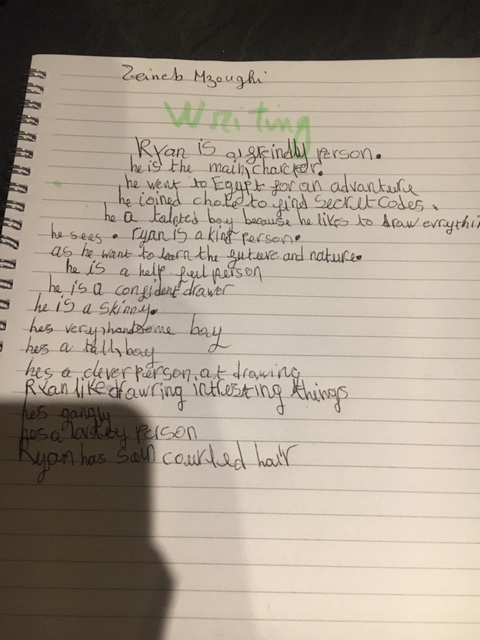 Zeineb Mzoughi
Writing
Ryan is a greindly person.
he is the main, charcter.
he went to Egypt for an advanture
he ioined chole to find Secret Codes.
he a taleted boy because he likes to draw evrythin
he sees. ryan is a kind person.
as he want to learn the guture and nature.
he is a help feel person
he is a confident drawer
he is a skinny.
hes very handsome boy
hes a tall boy
hes a clever person at drawing
Ryan like drawring intresting things
hes gangly
hes a person
Ryan has coureled hair